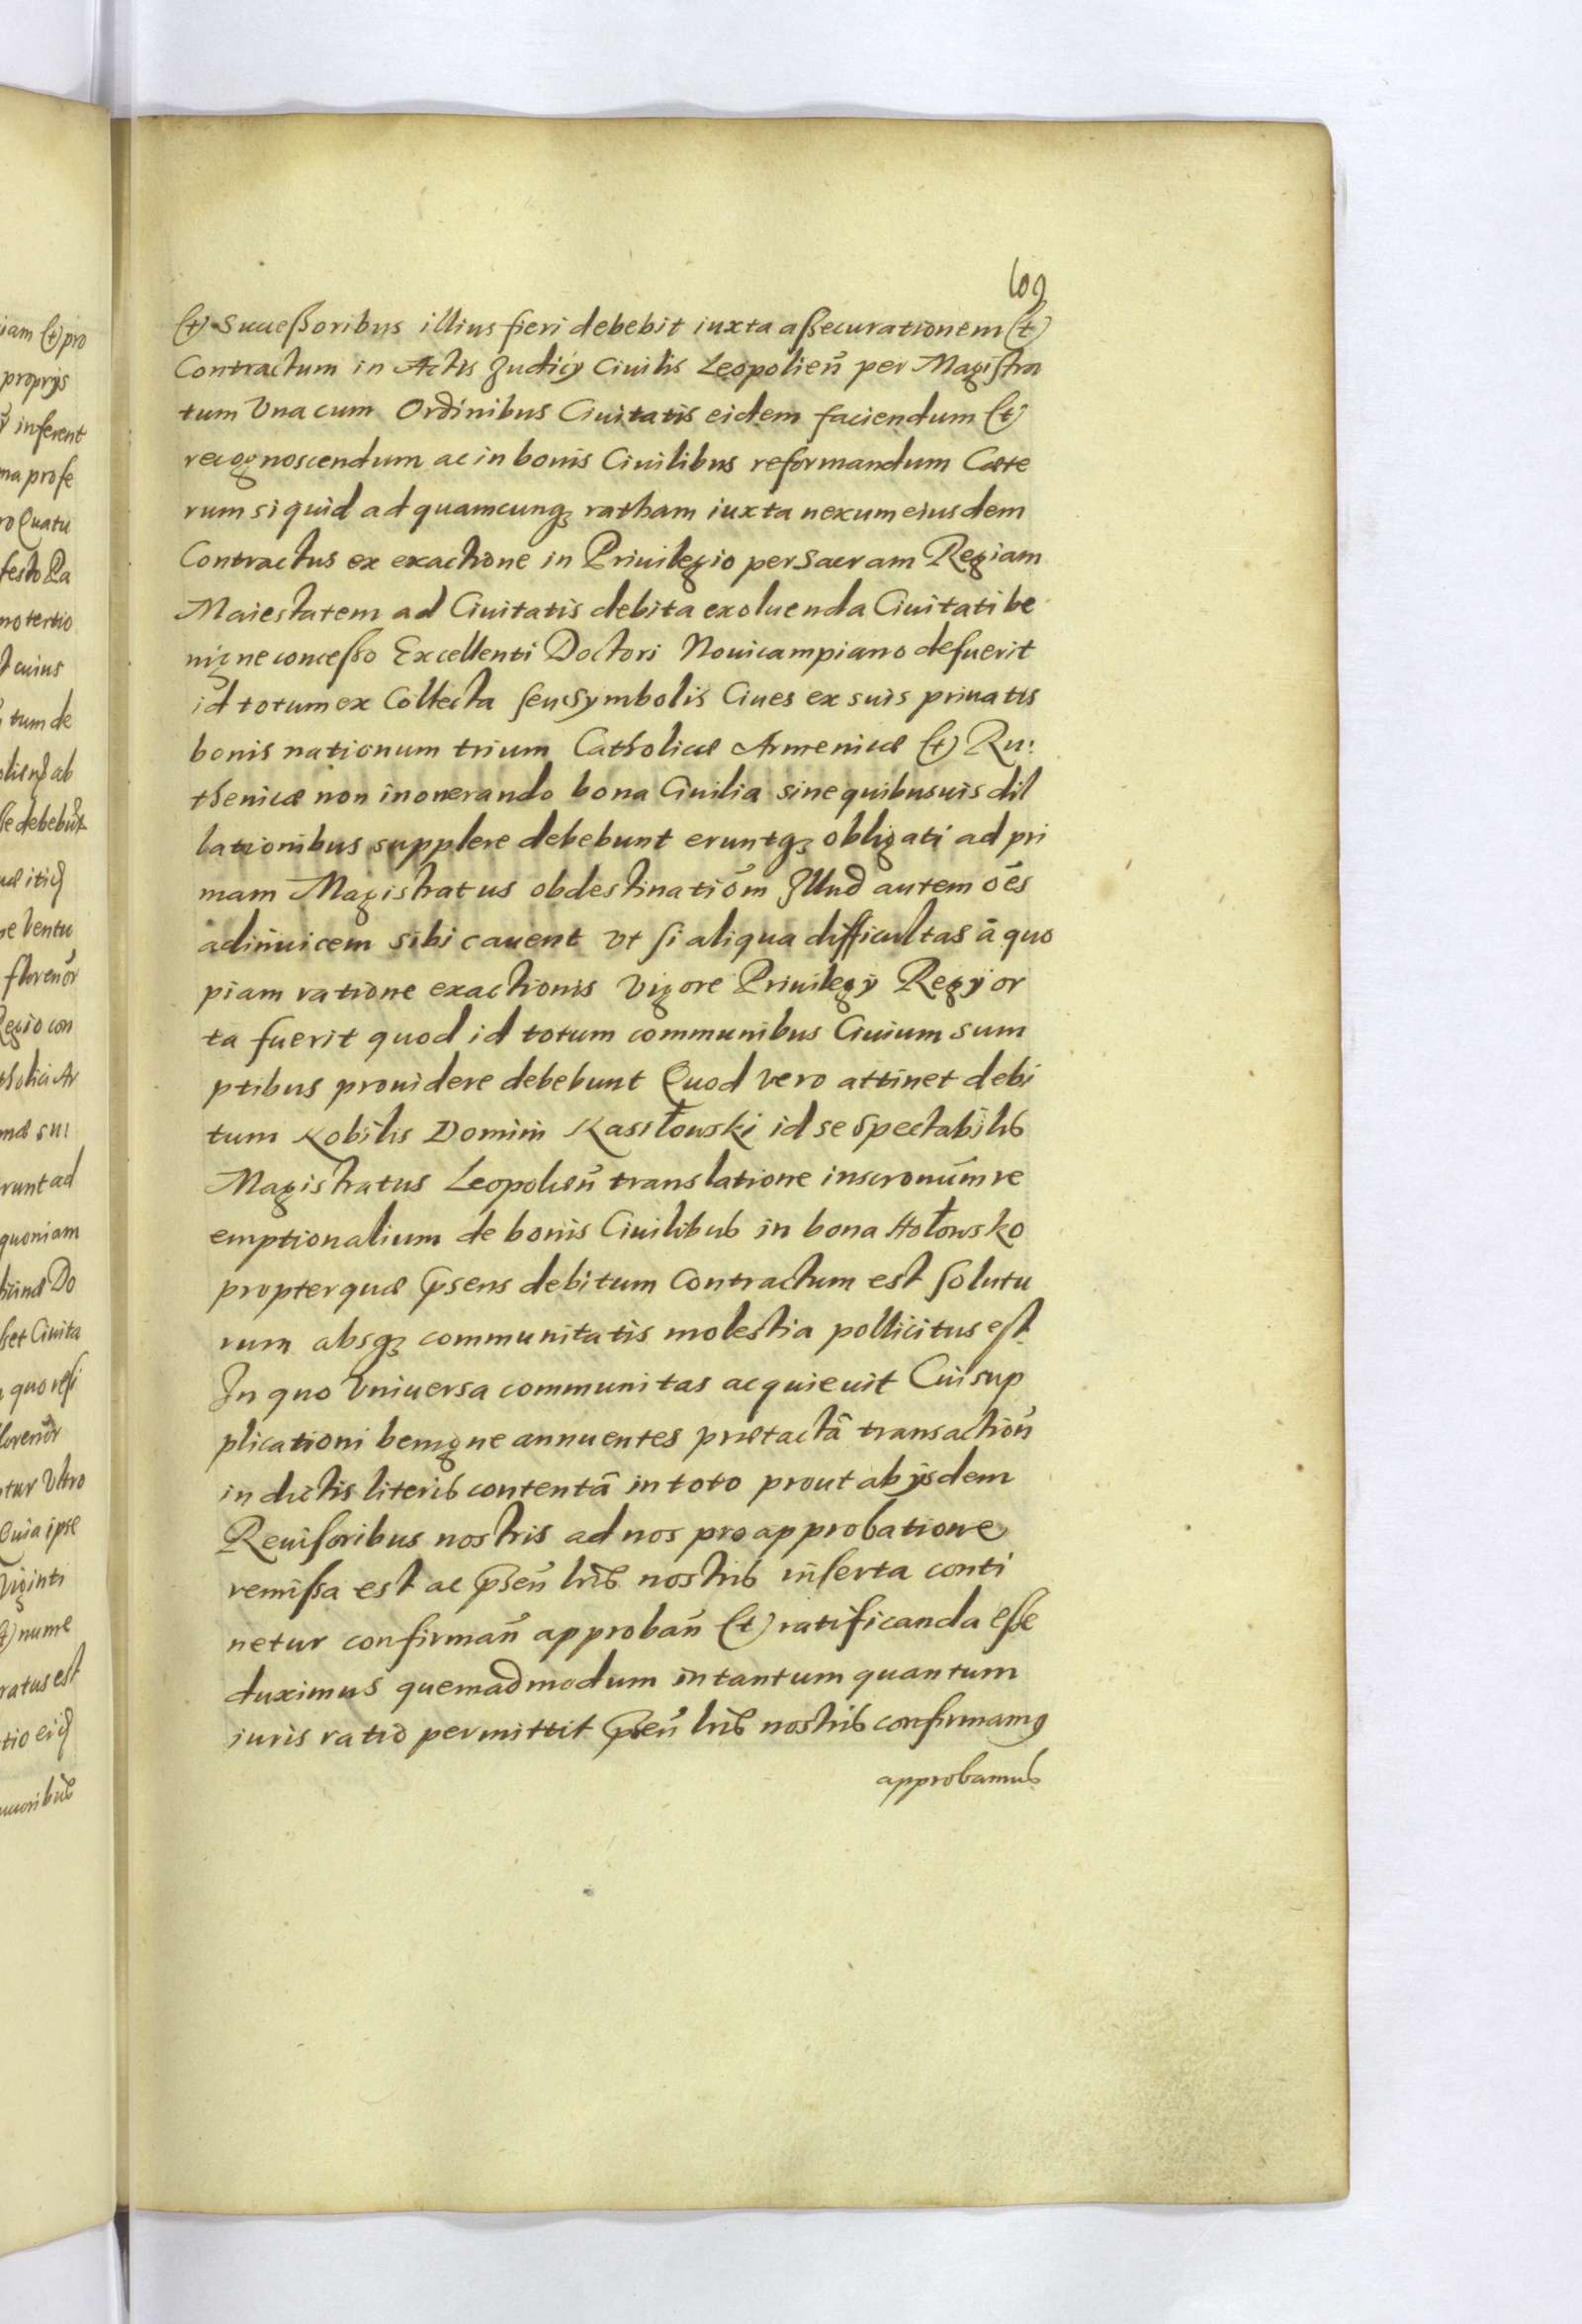 109
iam (et) pro
(et) Successoribus illius fieri debebit iuxta assecurationem (et)
proprijs
Contractum in Actis Judicÿ Ciuilis Leopolien̄ per Magistra
inferent
tum Vna cum Ordinibus Ciuitatis eidem faciendum (et)
ma profe
recognoscendum ac in bonis Ciuilibus reformandum Cæte
ro Quatu
rum si quid ad quamcunqȝ ratham iuxta nexum eiusdem
festo Pa
Contractus ex exactione in Priuilegio per Sacram Regiam
no tertio
Maiestatem ad Ciuitatis debita exoluenda Ciuitati be
t cuius
nigne concesso Excellenti Doctori Nouicampiano defuerit
tum de
id totum ex Collecta seu Symbolis Ciues ex suis priuatis
bonis nationum trium Catholicæ Armenicæ (et) Ru:
thenicæ non inonerando bona Ciuilia sine quibusuis dil
se debebūt
lationibus supplere debebunt eruntqȝ obligati ad pri
mam Magistratus obdestinatiōm Illud autem ōes
Ventu
adinuicem sibi cauent vt si aliqua difficultas ā quo
florenōr
piam ratione exactionis Vigore Priuilegÿ Regÿ or
Regio con
ta fuerit quod id totum communibus Ciuium sum
tholici Ar
ptibus prouidere debebunt Quod vero attinet debi
tum Nobilis Domini Kasiłowski id se Spectabilis
runt ad
Magistratus Leopolien̄ translatione inscronūm re
quoniam
emptionalium de bonis Ciuilibus in bona Hołowsko
propter quæ p̄sens debitum Contractum est solutu
set Ciuita
rum absqȝ communitatis molestia pollicitus est
quo resi
In quo Vniuersa communitas acquieuit Cui sup
florenōr
plicationi benigne annuentes prætactā transactiōn
tur Vltro
in dictis literis contentā in toto prout ab ÿsdem
Quia ipse
Reuisoribus nostris ad nos pro approbatione
Viginti
remissa est ac p̄sen̄ lris nostris inserta conti
(et) nume
netur confirman̄ approban̄ (et) ratificanda esse
ratus est
duximus quemadmodum in tantum quantum
iuris ratio permittit p̄sen̄ lris nostris confirmamꝰ
approbamus